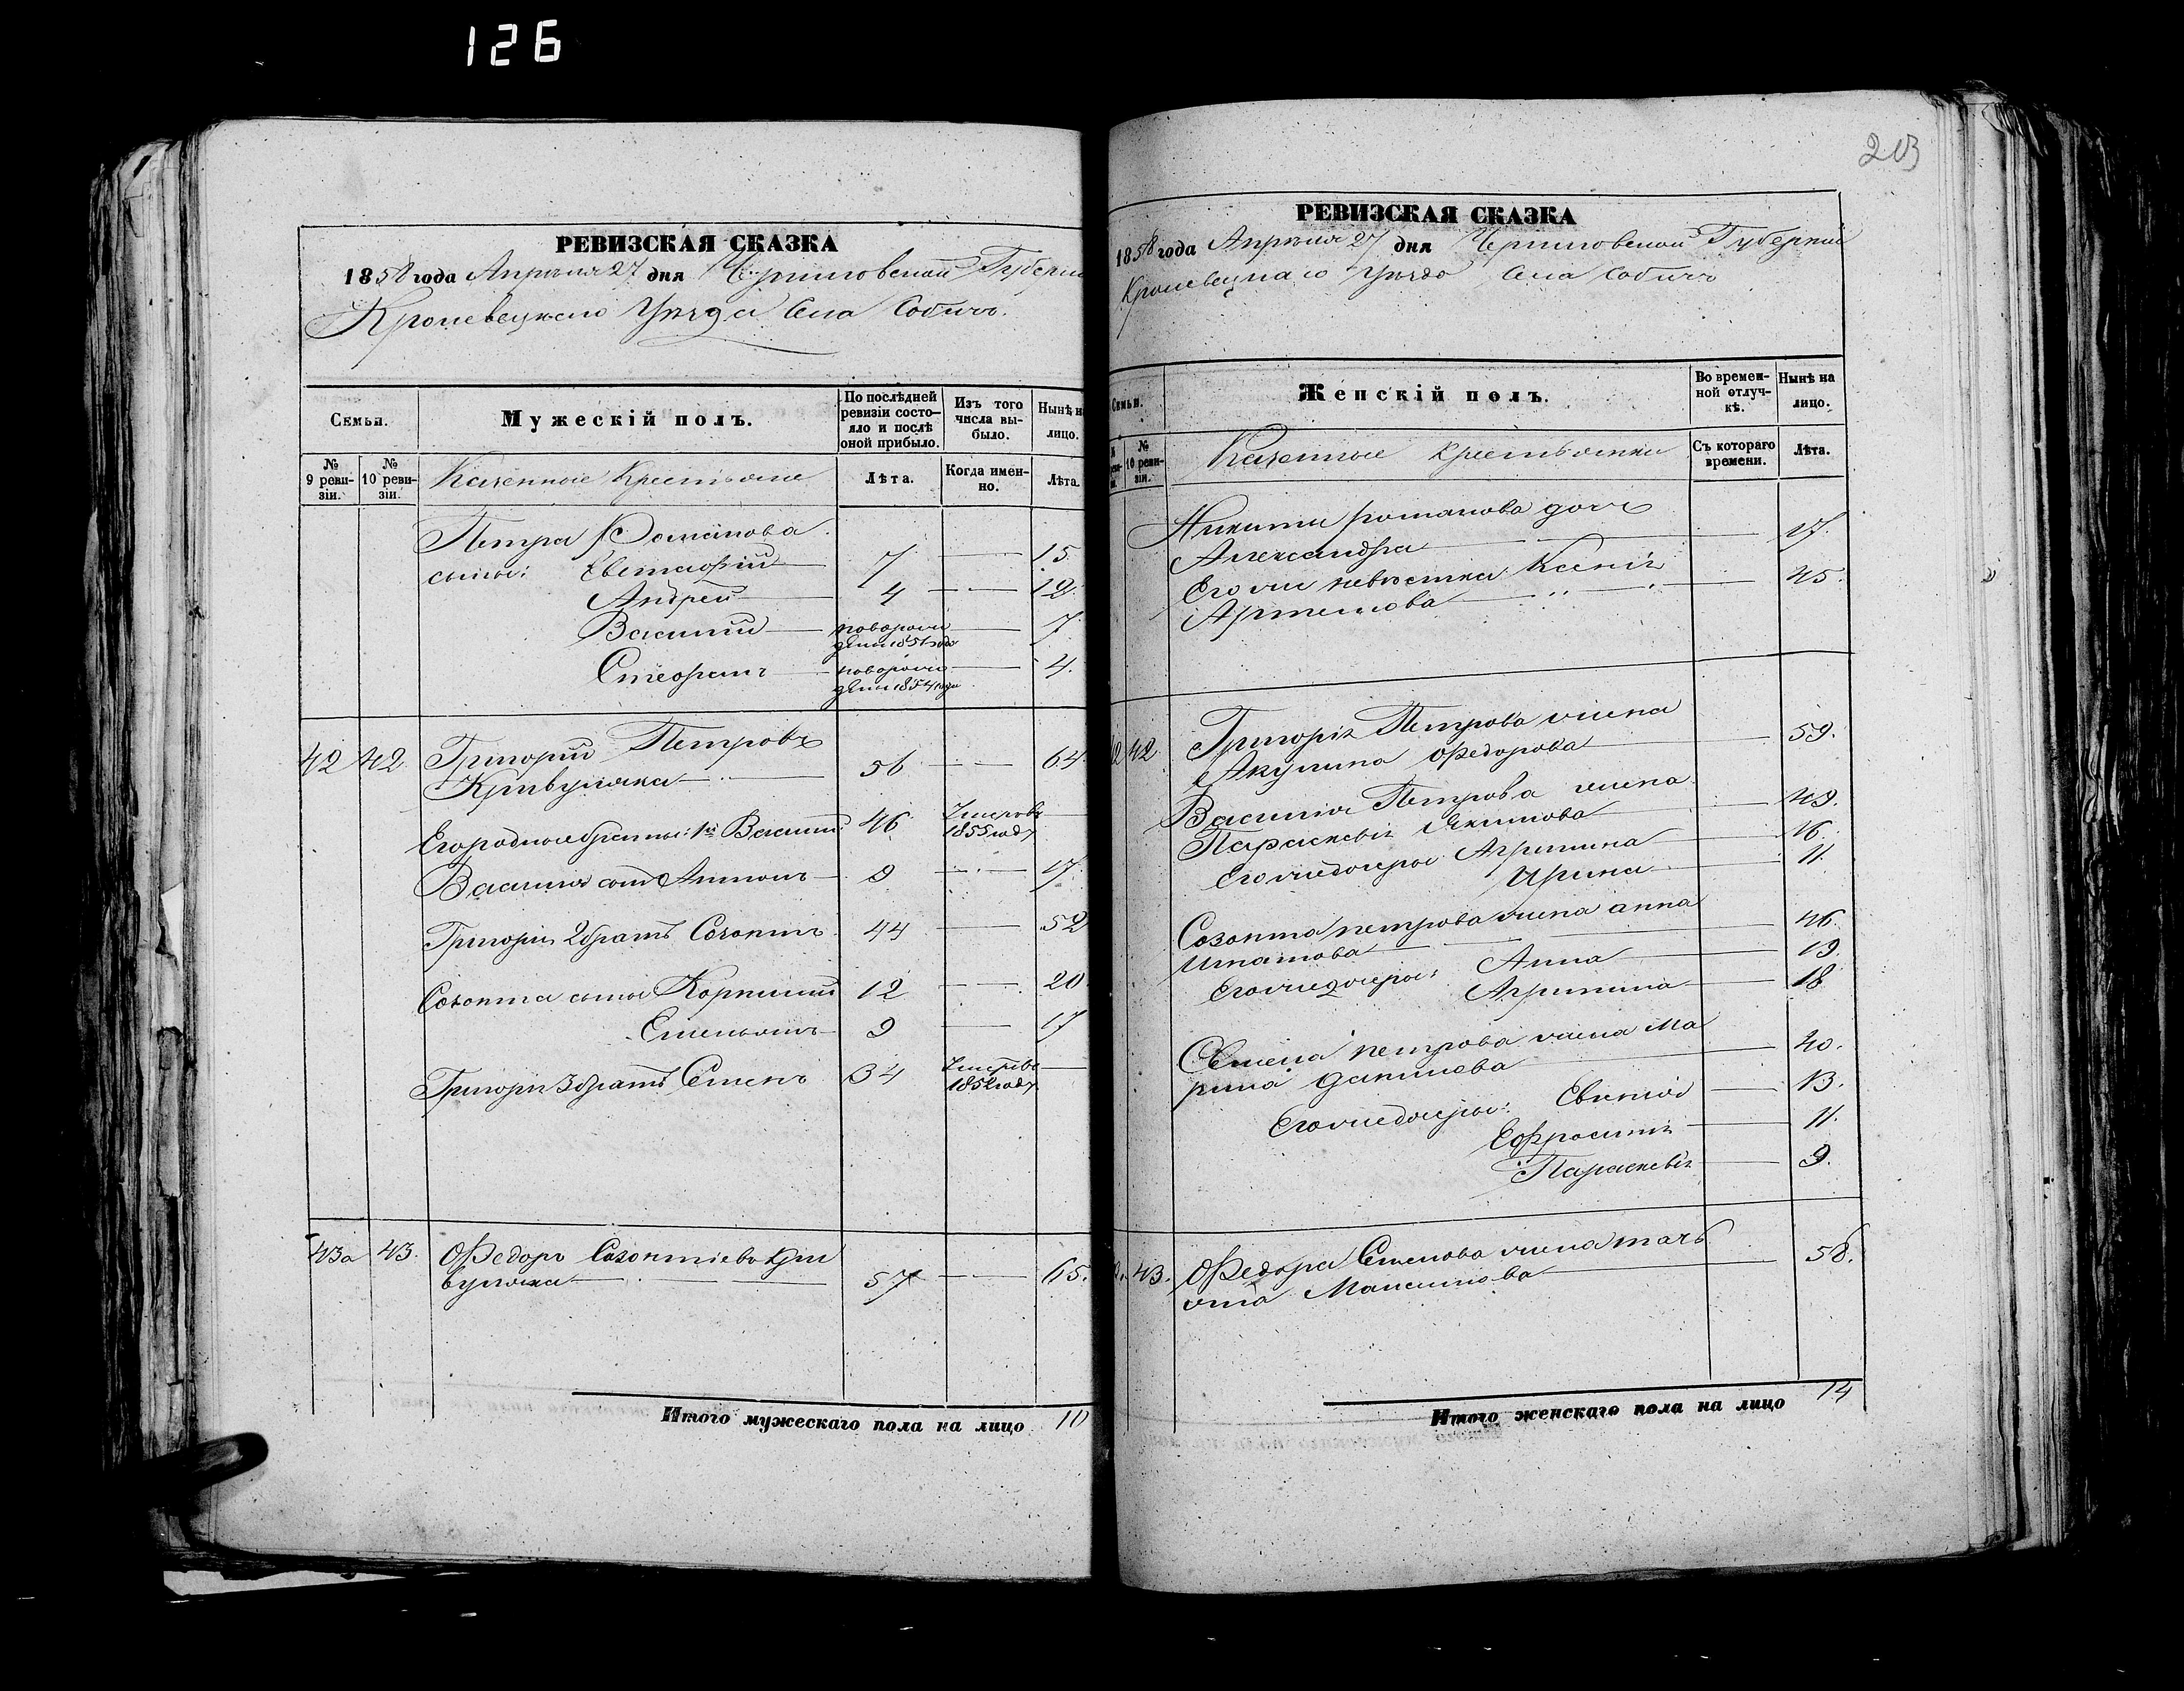 126
РЕВИЗСКАЯ СКАЗКА
1858 года Апреля 27 дня Черниговской Губерни
Кролевецкаго Уезда Села Собичь.
Семьи.
Мужескій полъ.
По послѣдней ревизіи состо-
яло и послѣ оной прибыло.
Изъ того числа вы-
было.
Нынѣ н
лицо.
№ 9 реви-
зіи.
№ 10 реви-
зіи.
Казенные Крестьяне
Лѣта.
Когда имен-
но.
Лѣта.
Петра Романова
сыны: Евстафій 7 15.
Андрей 4 12.
Василий новорож
ден 1851 года 7
Стефанъ новорож
ден 1854 года 4.
42 42 Григорий Петровъ
Кривуляка 56 64.
Его родные братья: 1й Василий 46 Умеръ въ
1855 году
Василия сынъ Антонъ 9 17.
Григорія 2 братъ Созонтъ 44 52
Созонта сыны Корнилий 12 20
Емельянъ 9 17
Григорія 3 братъ Семенъ 34 Умеръ въ
185 году
43 43. Федоръ Созонтіевъ Кри
вуляка 57 65.
Итого мужескаго пола на лицо 10
213
РЕВИЗСКАЯ СКАЗКА
1858 года Апреля 27 дня Черниговской Губернии
Кролевецкаго Уезда Села Собичь
Семьи.
Женскій полъ.
Во времен-
ной отлуч-
кѣ.
Нынѣ на
лицо.
№ 10 реви-
зіи.
Казенные Крестьянки
Съ котораго
времени.
Лѣта.
Никиты Романова дочь
Александра 17.
Его же невестка Ксенія
Артемова 45.
42 42. Григорія Петрова жена
Акулина Федорова 59.
Василия Петрова жена
Параскевія Якимова 49.
Его же дочери Агрипина 16.
Ирина 11.
Созонта Петрова жена Анна
Игнатова 46.
Его же дочери: Анна 19.
Агрипина 18
Семена Петрова жена Ма
рина Данилова 40.
Его же дочери: Евгенія 13.
Ефросинія 11.
Параскевія 9.
43. Федора Семенова жена
Максимова 58.
Итого женскаго пола на лицо 14